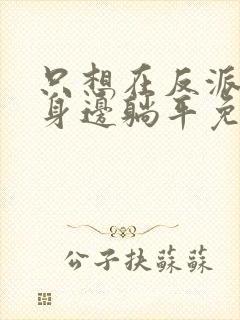 只想在反派
身邊躺平免
公子扶蘇蘇